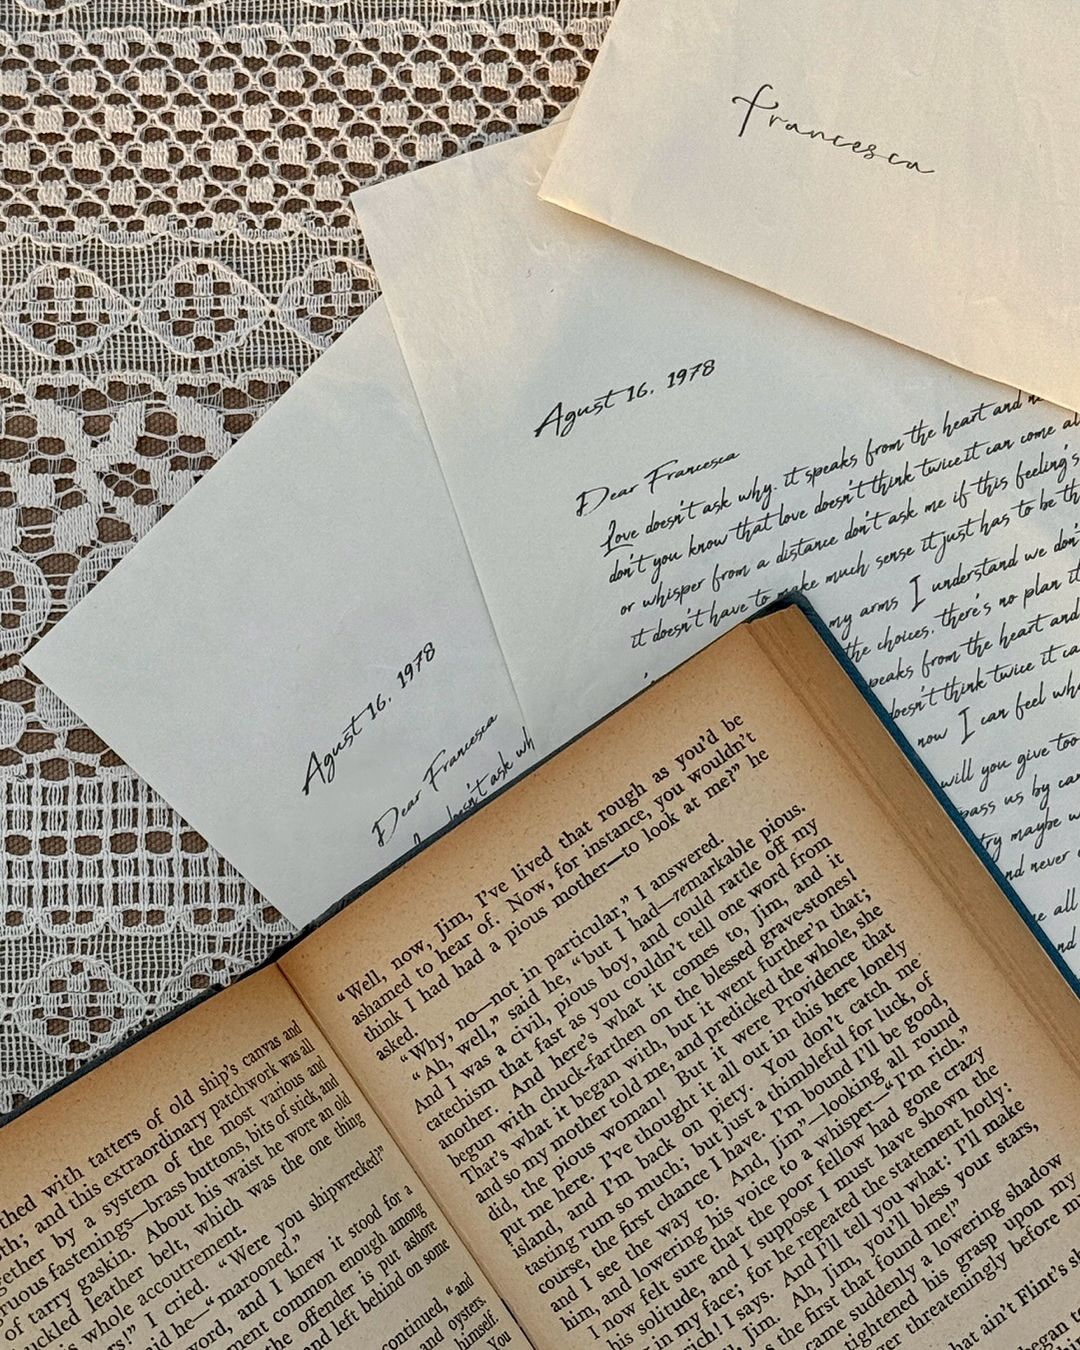 Francesca
Agust 16, 1978
Dear Francesca
Love doesn't ask why. it speaks from the heart and
don't you know that love doesn't think twice it can come
or whisper from a distance don't ask me if this feeling's
it doesn't have to make much sense it just has to be
my arms I understand we don'
the choices. there's no plan
speaks from the heart and
doesn't think twice it
now I can feel
will you give too
pass us by
try maybe
and never
all
Agust 16, 1978
Dear Francesca
doesn't ask
tatters of old ship's canvas and
and this extraordinary patchwork was all
by a system of the most various and
fastenings—brass buttons, bits of stick, and
of tarry gaskin. About his waist he wore an old
leather belt, which was the one thing
whole accoutrement.
I cried. “Were you shipwrecked?”
he—“marooned.”
word, and I knew it stood for a
common enough among
the offender is put ashore
and left behind on some
continued, “and
and oysters.
himself.
You
“Well, now, Jim, I've lived that rough as you'd be
ashamed to hear of. Now, for instance, you wouldn't
think I had had a pious mother—to look at me?” he
asked.
“Why, no—not in particular,” I answered.
“Ah, well,” said he, “but I had—remarkable pious.
And I was a civil, pious boy, and could rattle off my
catechism that fast as you couldn't tell one word from
another. And here's what it comes to, Jim, and it
begun with chuck-farthen on the blessed grave-stones!
That's what it began with, but it went further'n that;
and so my mother told me, and predicked the whole, she
did, the pious woman! But it were Providence that
put me here. I've thought it all out in this here lonely
island, and I'm back on piety. You don't catch me
tasting rum so much; but just a thimbleful for luck, of
course, the first chance I have. I'm bound I'll be good,
and I see the way to. And, Jim”—looking all round
him, and lowering his voice to a whisper—“I'm rich.”
I now felt sure that the poor fellow had gone crazy
his solitude, and I suppose I must have shown the
in my face; for he repeated the statement hotly:
rich! I says. And I'll tell you what: I'll make
Jim. Ah, Jim, you'll bless your stars,
the first that found me!”
came suddenly a lowering shadow
tightened his grasp upon my
threateningly before
that ain't Flint's
began